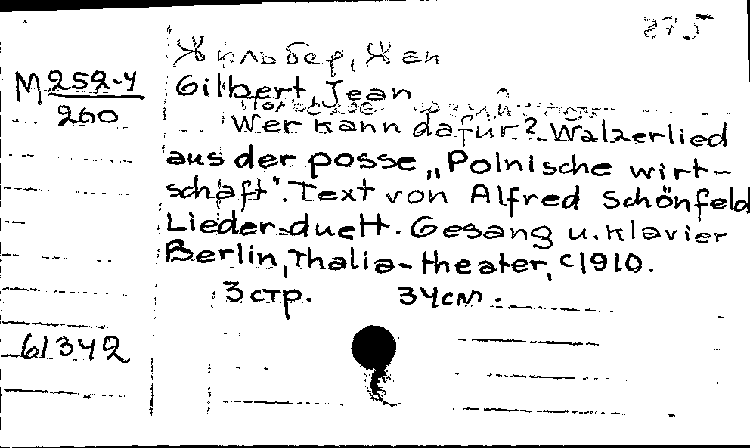 875
Жильбер, Жан
M 252-4
260
Gilbert, Jean
Wer kann dafür? Walzerlied
aus der posse „Polnische wirt-
schaft". Text von Alfred Schönfeld
Lieder-duett. Gesang u. klavier
Berlin, Thalia-theater, c1910.
3 стр. 34 см.
61342